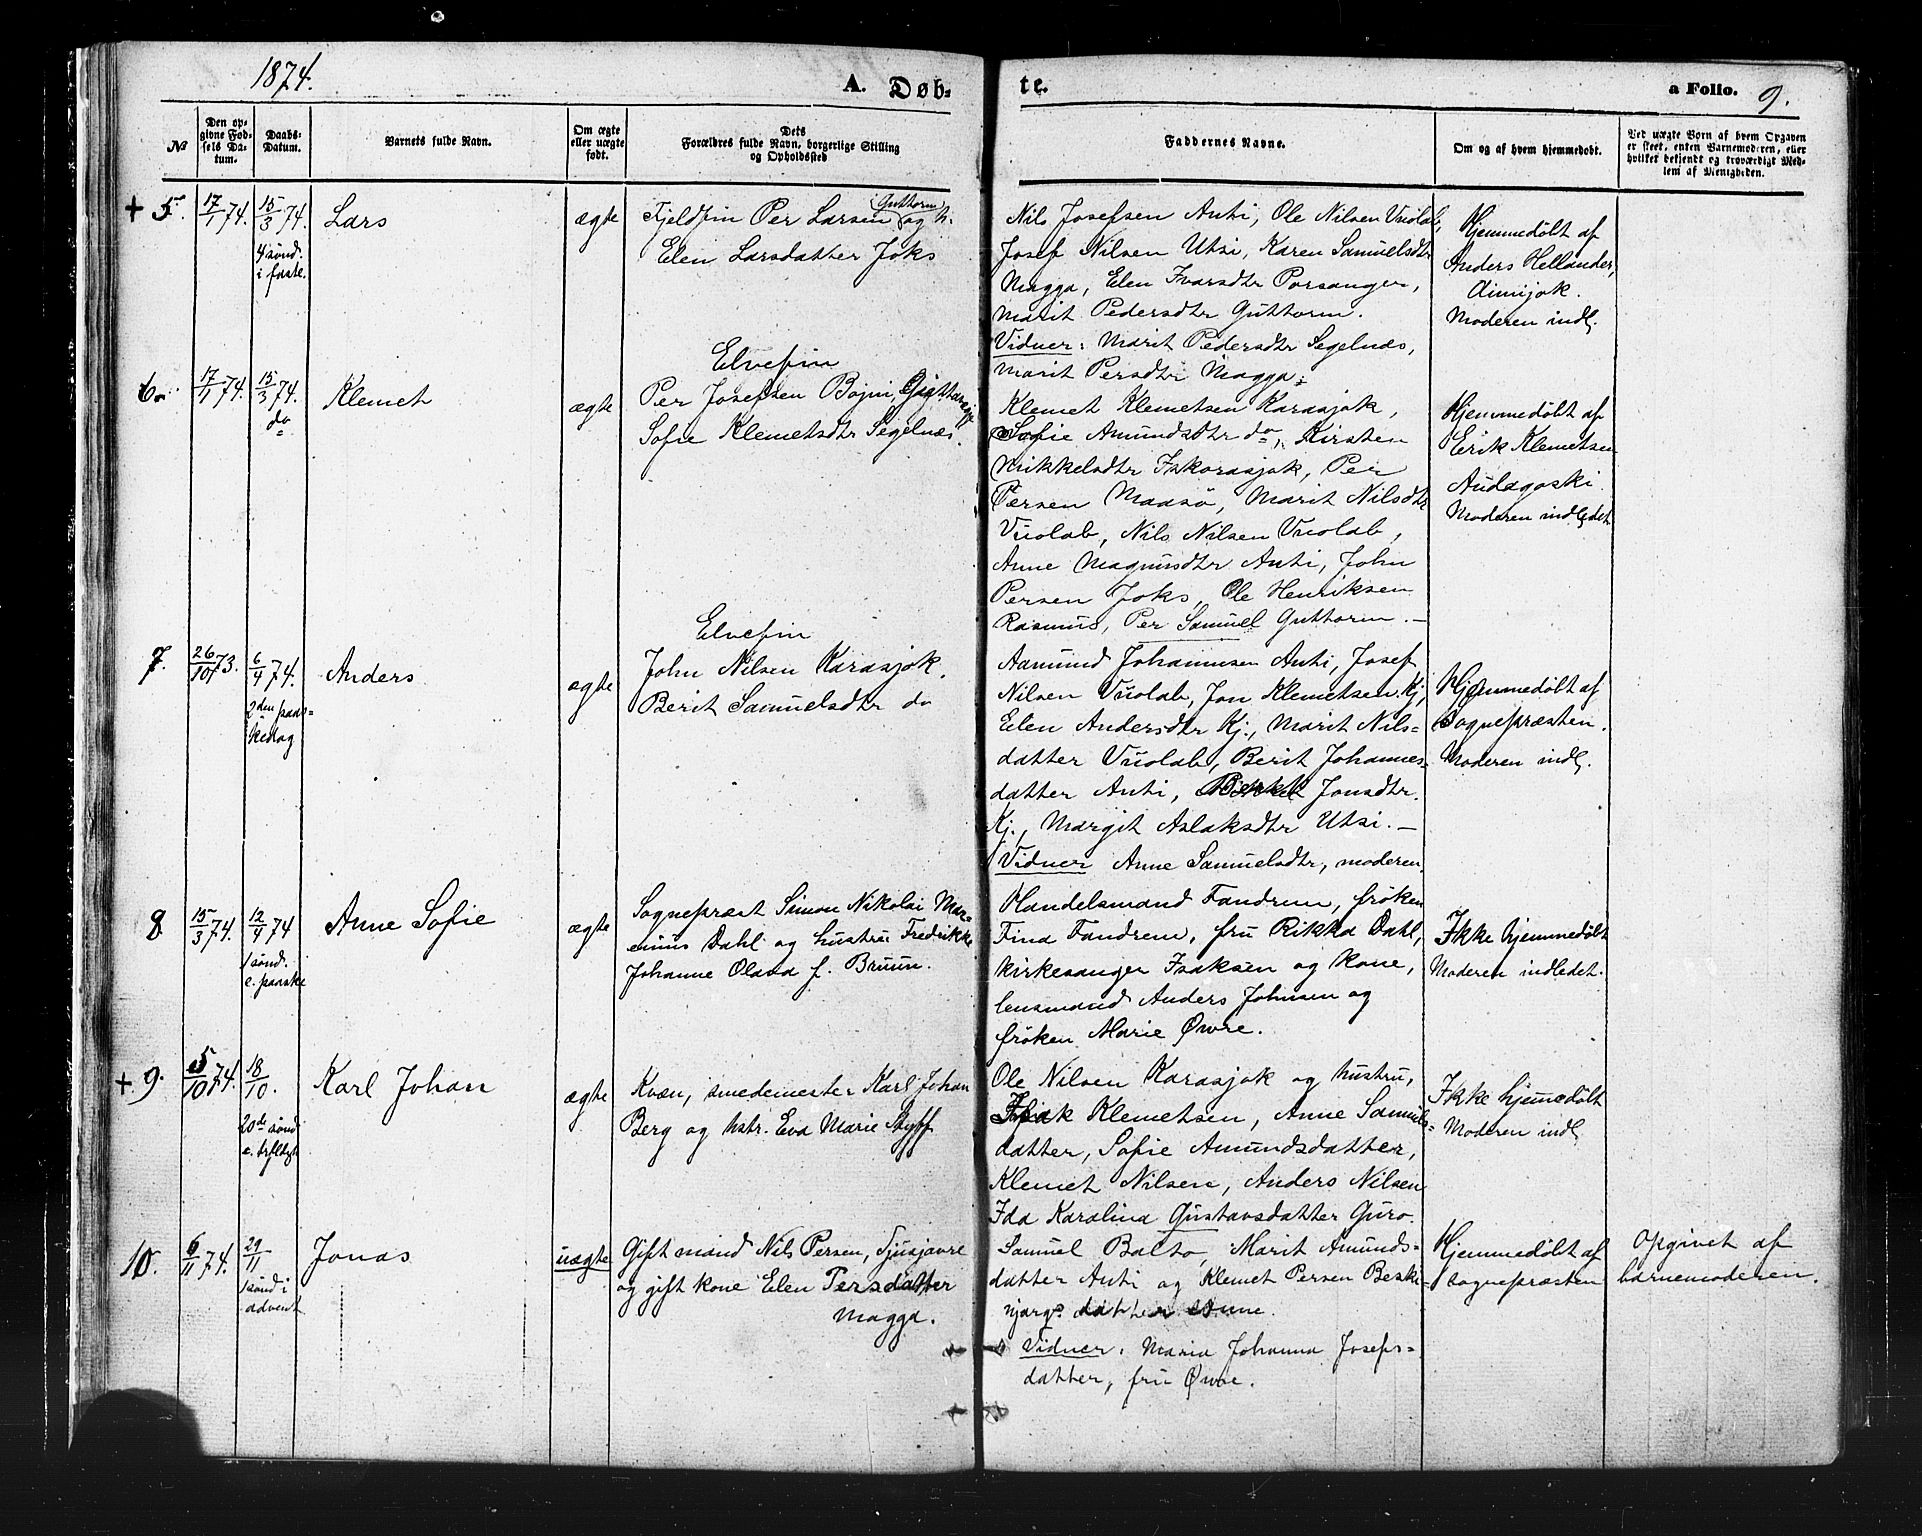 1874.
A. Døb=
te.
a Folio. 9.
№
Den op-
givne Fød-
sels Da-
tum.
Daabs-
Datum.
Barnets fulde Navn.
Om ægte
eller uægte
født.
Dets
Forældres fulde Navn, borgerlige Stilling
og Opholdssted
Faddernes Navne.
Om og af hvem hjemmedøbt.
Ved uægte Børn af hvem Opgaven
er skeet, enten Barnemoderen, eller
hvilket bekjendt og troværdigt Med-
lem af Menigheden.
+ 5.
17/1 74.
15/3 74.
4 sønd.
i faste.
Lars
ægte
Fjeldfin Per Larsen (Guttorm) og h.
Elen Larsdatter Joks
Nils Josefsen Anti, Ole Nilsen Vuolab,
Josef Nilsen Utsi, Karen Samuelsdtr
Magga, Elen Ivarsdtr Porsanger,
Marit Pedersdtr Guttorm.
Vidner: Marit Pedersdtr Segelnæs,
Marit Persdtr Magga.
Hjemmedøbt af
Anders Hellander,
Aimijok.
Moderen indl.
6.
17/1 74.
15/3 74.
do
Klemet
ægte
Elvefin
Per Josefsen Bojni,
Sofie Klemetsdtr Segelnæs.
Klemet Klemetsen Karasjok,
Sofie Amundsdtr do, Kirsten
Mikkelsdtr Iskorasjok, Per
Persen Maasø, Marit Nilsdtr
Vuolab, Nils Nilsen Vuolab,
Anne Magnusdtr Anti, John
Persen Joks, Ole Henriksen
Rasmus, Per Samuel Guttorm. —
Hjemmedøbt af
Erik Klemetsen
Audagoski
Moderen indledet
7.
26/10 73.
6/4 74.
2den paas-
kedag
Anders
ægte
Elvefin
John Nilsen Karasjok.
Berit Samuelsdtr do
Aamund Johannesen Anti, Josef
Nilsen Vuolab, Jon Klemetsen Kj,
Elen Andersdtr Kj., Marit Nils-
datter Vuolab, Berit Johannes-
datter Anti, Jonsdtr.
Kj., Margit Aslaksdtr Utsi. —
Vidner Anne Samuelsdtr, moderen.
Hjemmedøbt af
Sognepræsten.
Moderen indl.
8
15/3 74.
12/4 74
1 sønd.
e. paaske
Anne Sofie
ægte
Sognepræst Simon Nikolai Mar-
enius Dahl og hustru Fredrikke
Johanne Olava f. Bruun.
Handelsmand Fandrem, frøken
Fina Fandrem, fru Rikka Dahl,
kirkesanger Isaksen og kone,
lensmand Anders Johnsen og
frøken Marie Øwre.
Ikke hjemmedøbt
Moderen indledet.
+ 9.
5/10 74.
18/10.
20de sønd
e. trfldgt
Karl Johan
ægte
Kvæn, smedemester Karl Johan
Berg og hstr. Eva Marie Styff
Ole Nilsen Karasjok og hustru,
Isak Klemetsen, Anne Samuels-
datter, Sofie Amundsdatter,
Klemet Nilsen, Anders Nilsen
Ida Karolina Gustavsdatter Guro.
Ikke hjemedøbt
Moderen indl.
10.
6/11 74.
29/11
1 sønd i
advent
Jonas
uægte
Gift mand Nils Persen, Sjusjavre
og gift kone Elen Persdatter
Magga.
Samuel Balto, Marit Amunds-
datter Anti og Klemet Persen Beski-
njarg.
Vidner: Maria Johanna Josefs-
datter, fru Øwre.
Hjemmedøbt af
sognepræsten
Opgivet af
barnemoderen.